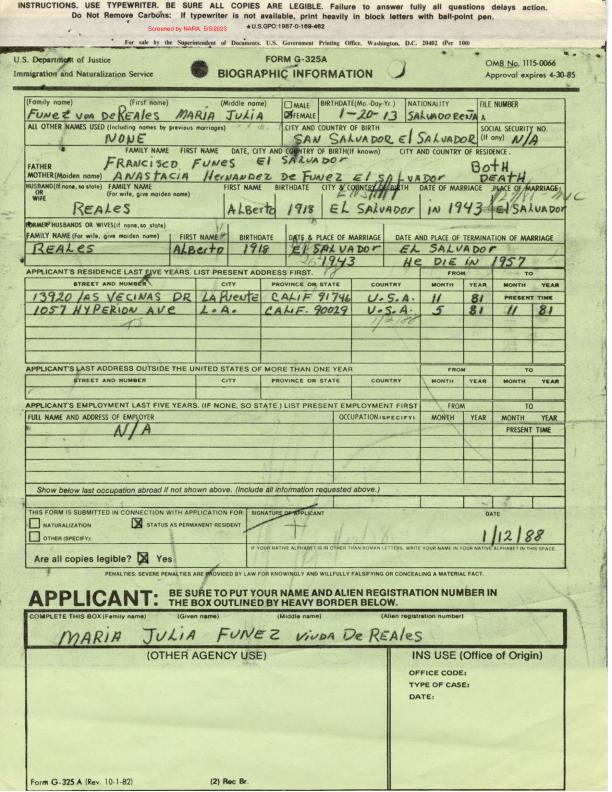 INSTRUCTIONS. USE TYPEWRITER. BE SURE ALL COPIES ARE LEGIBLE. Failure to answer fully all questions delays action.
Do Not Remove Carbons: If typewriter is not available, print heavily in block letters with ball-point pen.
Screened by NARA, 5/5/2023
★U.S.GPO:1987-0-169-462
For sale by the Superintendent of Documents, U.S. Government Printing Office, Washington, D.C. 20402 (Per 100)
U.S. Department of Justice
Immigration and Naturalization Service
FORM G-325A
BIOGRAPHIC INFORMATION
OMB No. 1115-0066
Approval expires 4-30-85
(Family name) (First name) (Middle name) MALE FEMALE BIRTHDATE (Mo.-Day-Yr.) NATIONALITY FILE NUMBER
FUNEZ VDA DeREALES MARIA JULIA 1-20-13 SALVADOREÑA A
ALL OTHER NAMES USED (Including names by previous marriages) CITY AND COUNTRY OF BIRTH SOCIAL SECURITY NO. (If any)
NONE SAN SALVADOR El SALVADOR N/A
FAMILY NAME FIRST NAME DATE, CITY AND COUNTRY OF BIRTH(If known) CITY AND COUNTRY OF RESIDENCE.
FATHER FRANCISCO FUNES El SALVADOR Both
MOTHER(Maiden name) ANASTACIA HERNANDEZ DE FUNEZ El SALVADOR DEATH
HUSBAND(If none, so state) OR WIFE FAMILY NAME (For wife, give maiden name) FIRST NAME BIRTHDATE CITY & COUNTRY OF BIRTH DATE OF MARRIAGE PLACE OF MARRIAGE
REALES AlBerto 1918 EL SALVADOR in 1943 El SALVADOR
FORMER HUSBANDS OR WIVES(if none, so state)
FAMILY NAME (For wife, give maiden name) FIRST NAME BIRTHDATE DATE & PLACE OF MARRIAGE DATE AND PLACE OF TERMINATION OF MARRIAGE
REALES AlBerto 1918 El SALVADOR EL SALVADOR
1943 He DIE IN 1957
APPLICANT'S RESIDENCE LAST FIVE YEARS. LIST PRESENT ADDRESS FIRST. FROM TO
STREET AND NUMBER CITY PROVINCE OR STATE COUNTRY MONTH YEAR MONTH YEAR
13920 lAS VECINAS DR LA PUENTE CALIF 91746 U.S.A. 11 81 PRESENT TIME
1057 HYPERION AVE L.A. CALIF. 90029 U.S.A. 5 81 11 81
APPLICANT'S LAST ADDRESS OUTSIDE THE UNITED STATES OF MORE THAN ONE YEAR FROM TO
STREET AND NUMBER CITY PROVINCE OR STATE COUNTRY MONTH YEAR MONTH YEAR
APPLICANT'S EMPLOYMENT LAST FIVE YEARS. (IF NONE, SO STATE.) LIST PRESENT EMPLOYMENT FIRST FROM TO
FULL NAME AND ADDRESS OF EMPLOYER OCCUPATION(SPECIFY) MONTH YEAR MONTH YEAR
N/A PRESENT TIME
Show below last occupation abroad if not shown above. (Include all information requested above.)
THIS FORM IS SUBMITTED IN CONNECTION WITH APPLICATION FOR SIGNATURE OF APPLICANT DATE
NATURALIZATION STATUS AS PERMANENT RESIDENT
OTHER (SPECIFY): 1/12/88
Are all copies legible? Yes
IF YOUR NATIVE ALPHABET IS IN OTHER THAN ROMAN LETTERS, WRITE YOUR NAME IN YOUR NATIVE ALPHABET IN THIS SPACE
PENALTIES: SEVERE PENALTIES ARE PROVIDED BY LAW FOR KNOWINGLY AND WILLFULLY FALSIFYING OR CONCEALING A MATERIAL FACT.
APPLICANT: BE SURE TO PUT YOUR NAME AND ALIEN REGISTRATION NUMBER IN
THE BOX OUTLINED BY HEAVY BORDER BELOW.
COMPLETE THIS BOX (Family name) (Given name) (Middle name) (Alien registration number)
MARIA JULIA FUNEZ VIUDA De REALES
(OTHER AGENCY USE)
INS USE (Office of Origin)
OFFICE CODE:
TYPE OF CASE:
DATE:
Form G-325 A (Rev. 10-1-82) (2) Rec Br.